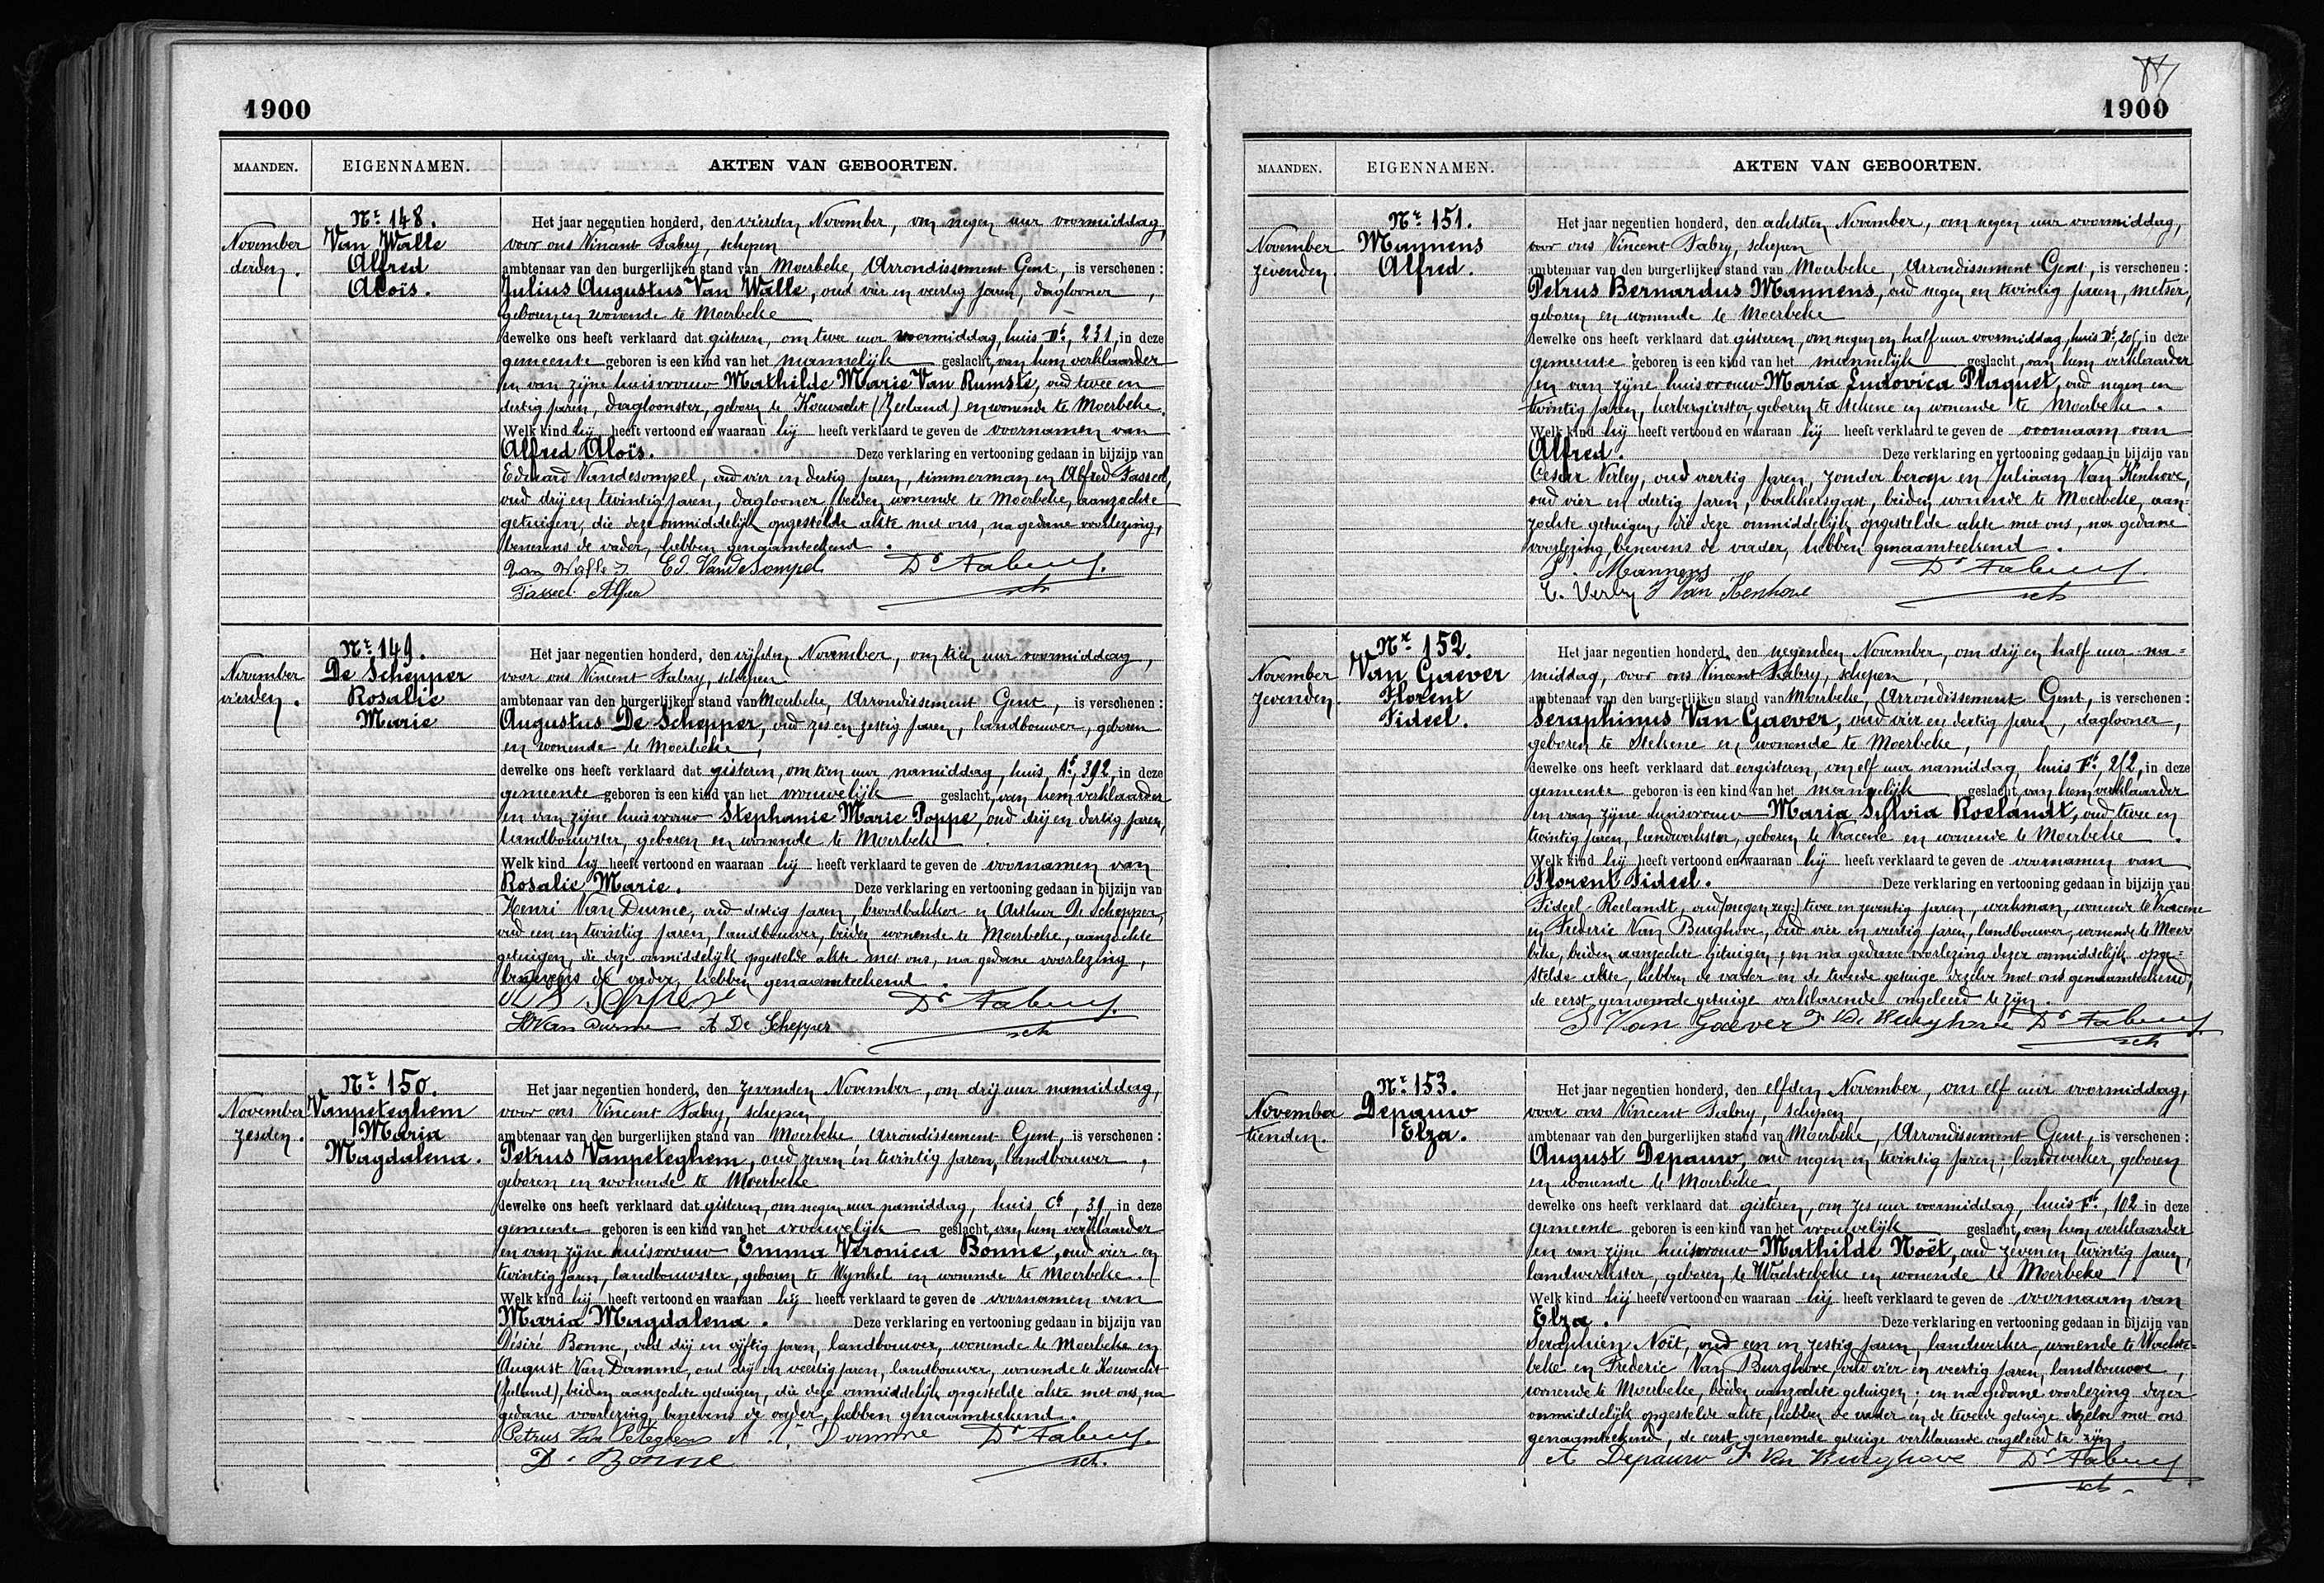 1900
MAANDEN. EIGENNAMEN. AKTEN VAN GEBOORTEN.
November
derden.
Nr 148.
Van Walle
Alfred
Aloïs.
Het jaar negentien honderd, den vierden November, om negen uur voormiddag,
voor ons Vincent Fabry, schepen
ambtenaar van den burgerlijken stand van Moerbeke, Arrondissement Gent, is verschenen:
Julius Augustus Van Walle, oud vier en veertig jaren, daglooner,
geboren en wonende te Moerbeke
dewelke ons heeft verklaard dat gisteren, om twee uur voormiddag, huis 231, in deze
gemeente geboren is een kind van het mannelijk geslacht, van hem verklaarder
en van zijne huisvrouw Mathilde Marie Van Rumste, oud twee en
dertig jaren, dagloonster, geboren te Koewacht (Zeeland) en wonende te Moerbeke.
Welk kind hij heeft vertoond en waaraan hij heeft verklaard te geven de voornamen van
Alfred Aloïs. Deze verklaring en vertooning gedaan in bijzijn van
Eduard Vandesompel, oud vier en dertig jaren, timmerman en Alfred Tasseel,
oud drij en twintig jaren, daglooner, beiden wonende te Moerbeke, aanzochte
getuigen, die deze onmiddelijk opgestelde akte met ons, na gedane voorlezing,
benevens de vader, hebben genaamteekend.
Van Walle J Ed. VandeSompel Dr Fabry.
Tasseel Alfred sch
November
vierden.
Nr 149.
De Schepper
Rosalie
Marie
Het jaar negentien honderd, den vijfden November, om tien uur voormiddag,
voor ons Vincent Fabry, schepen
ambtenaar van den burgerlijken stand van Moerbeke, Arrondissement Gent, is verschenen:
Augustus De Schepper, oud zes en zestig jaren, landbouwer, geboren
en wonende te Moerbeke,
dewelke ons heeft verklaard dat gisteren, om tien uur namiddag, huis, A, 392, in deze
gemeente geboren is een kind van het vrouwelijk geslacht, van hem verklaarder
en van zijne huisvrouw Stephanie Marie Poppe, oud drij en dertig jaren,
landbouwster, geboren en wonende te Moerbeke.
Welk kind hij heeft vertoond en waaraan hij heeft verklaard te geven de voornamen van
Rosalie Marie. Deze verklaring en vertooning gedaan in bijzijn van
Henri Van Durme, oud dertig jaren, broodbakker en Arthur De Schepper,
oud een en twintig jaren, landbouwer, beiden wonende te Moerbeke, aanzochte
getuigen, die deze onmiddelijk opgestelde akte met ons, na gedane voorlezing,
benevens de vader, hebben genaamteekend.
Dr Fabry.
H Van Durme A De Schepper sch
November
zesden.
Nr 150.
Vanpeteghem
Maria
Magdalena.
Het jaar negentien honderd, den zevenden November, om drij uur namiddag,
voor ons Vincent Fabry, schepen
ambtenaar van den burgerlijken stand van Moerbeke Arrondissement Gent, is verschenen:
Petrus Vanpeteghem, oud zeven en twintig jaren, landbouwer,
geboren en wonende te Moerbeke
dewelke ons heeft verklaard dat gisteren, om negen uur namiddag, huis C, 39, in deze
gemeente geboren is een kind van het vrouwelijk geslacht, van hem verklaarder
en van zijne huisvrouw Emma Veronica Bonne, oud vier en
twintig jaren, landbouwster, geboren te Wynkel en wonende te Moerbeke.
Welk kind hij heeft vertoond en waaraan hij heeft verklaard te geven de voornamen van
Maria Magdalena. Deze verklaring en vertooning gedaan in bijzijn van
Désiré Bonne, oud drij en vijftig jaren, landbouwer, wonende te Moerbeke en
August Van Damme, oud drij en veertig jaren, landbouwer, wonende te Koewacht
(Zeeland), beiden aanzochte getuigen, die deze onmiddelijk opgestelde akte met ons, na
gedane voorlezing, benevens de vader, hebben genaamteekend.
Petrus Van Peteghem A V. Damme Dr Fabry.
D. Bonne sch.
1900
MAANDEN. EIGENNAMEN. AKTEN VAN GEBOORTEN.
November
zevenden.
Nr 151.
Mannens
Alfred.
Het jaar negentien honderd, den achtsten November, om negen uur voormiddag,
voor ons Vincent Fabry, schepen
ambtenaar van den burgerlijken stand van Moerbeke, Arrondissement Gent, is verschenen:
Petrus Bernardus Mannens, oud negen en twintig jaren, metser,
geboren en wonende te Moerbeke
dewelke ons heeft verklaard dat gisteren, om negen en half uur voormiddag, huis in deze
gemeente geboren is een kind van het mannelijk geslacht, van hem verklaarder
en van zijne huisvrouw Maria Ludovica Plaquet, oud negen en
twintig jaren, herbergierster, geboren te Stekene en wonende te Moerbeke.
Welk kind hij heeft vertoond en waaraan hij heeft verklaard te geven de voornaam van
Alfred. Deze verklaring en vertooning gedaan in bijzijn van
Cesar Verley, oud veertig jaren, zonder beroep en Juliaan Van Kenhove,
oud vier en dertig jaren, bakkersgast, beiden wonende te Moerbeke, aan-
zochte getuigen, die deze onmiddelijk opgestelde akte met ons, na gedane
voorlezing, benevens de vader, hebben genaamteekend.
Mannens Dr Fabry.
C. Verley J Van Kenhove sch
November
zevenden.
Nr 152.
Van Gaever
Florent
Fideel.
Het jaar negentien honderd, den negenden November, om drij en half uur na-
middag, voor ons Vincent Fabry, schepen,
ambtenaar van den burgerlijken stand van Moerbeke, Arrondissement Gent, is verschenen:
Seraphinus Van Gaever, oud vier en dertig jaren, daglooner,
geboren te Stekene en wonende te Moerbeke,
dewelke ons heeft verklaard dat eergisteren, om elf uur namiddag, huis F, 212, in deze
gemeente geboren is een kind van het mannelijk geslacht, van hem verklaarder
en van zijne huisvrouw Maria Sylvia Roelandt, oud twee en
twintig jaren, landwerkster, geboren te Vracene en wonende te Moerbeke.
Welk kind hij heeft vertoond en waaraan hij heeft verklaard te geven de voornamen van
Florent Fideel. Deze verklaring en vertooning gedaan in bijzijn van
Fideel Roelandt, oud twee en zeventig jaren, werkman, wonende te Vracene
en Frederic Van Burghove, oud vier en veertig jaren, landbouwer, wonende te Moer
beke, beiden aanzochte getuigen; en na gedane voorlezing dezer onmiddelijk opge-
stelde akte, hebben de vader en de tweede getuige dezelve met ons genaamteekend,
de eerst genoemde getuige verklarende ongeleerd te zijn.
S Van Gaever F Van Burghove Dr Fabry.
sch
November
tienden.
Nr 153.
Depauw
Elza.
Het jaar negentien honderd, den elfden November, om elf uur voormiddag,
voor ons Vincent Fabry, schepen
ambtenaar van den burgerlijken stand van Moerbeke, Arrondissement Gent, is verschenen:
August Depauw, oud negen en twintig jaren, landwerker, geboren
en wonende te Moerbeke,
dewelke ons heeft verklaard dat gisteren, om zes uur voormiddag, huis F, 102 in deze
gemeente geboren is een kind van het vrouwelijk geslacht, van hem verklaarder
en van zijne huisvrouw Mathilde Noët, oud zeven en twintig jaren,
landwerkster, geboren te Wachtebeke en wonende te Moerbeke.
Welk kind hij heeft vertoond en waaraan hij heeft verklaard te geven de voornaam van
Elza. Deze verklaring en vertooning gedaan in bijzijn van
Seraphien Noët, oud een en zestig jaren, landwerker, wonende te Wachte-
beke en Frederic Van Burghove, oud vier en veertig jaren, landbouwer,
wonende te Moerbeke, beiden aanzochte getuigen; en na gedane voorlezing dezer
onmiddelijk opgestelde akte, hebben de vader en de tweede getuige dezelve met ons
genaamteekend, de eerst genoemde getuige verklarende ongeleerd te zijn.
A Depauw F Van Burghove Dr Fabry
sch.